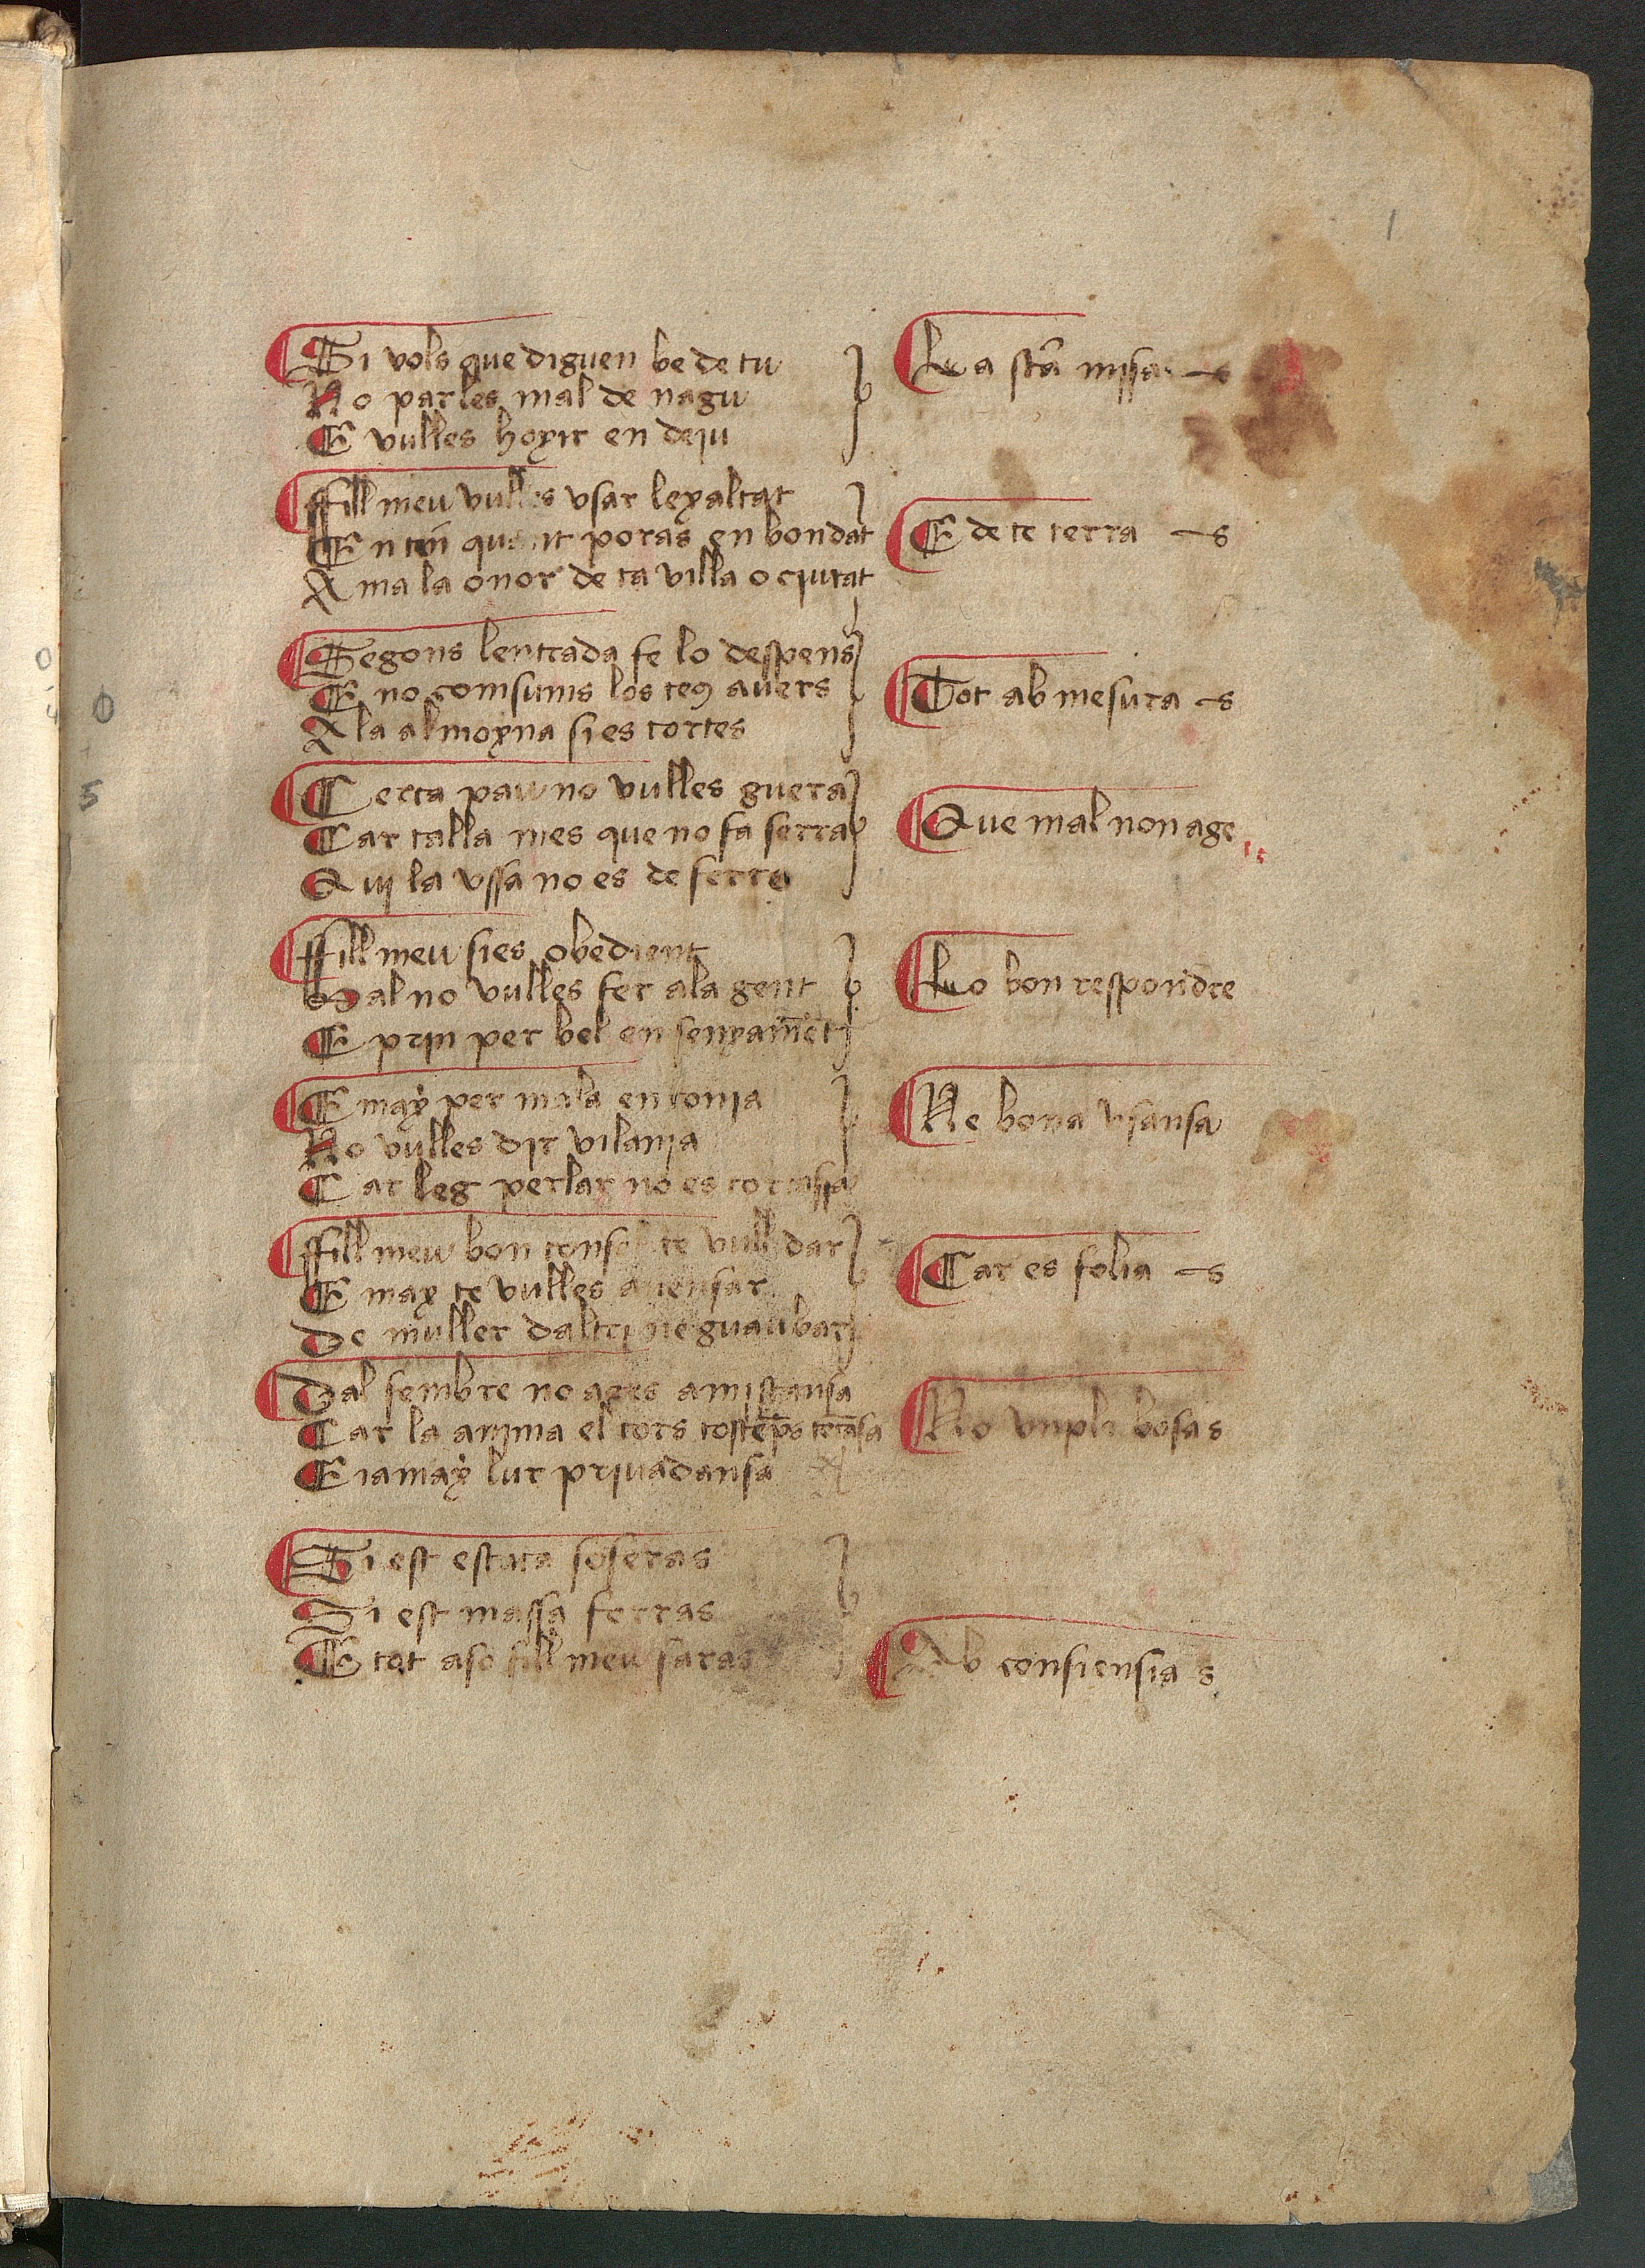 1
Si vols que diguen be de tu
No parles mal de nagu
E vulles hoyir en deiu
La sta missa
ffill meu vulles usar leyaltat
En tu quant poras en bondat
Ama la onor de ta villa o ciutat
E de te terra
Segons lentrada fe lo despens
E no comsums los teus avers
A la almoyna sies cortes
Tot ab mesura
Cerca pau no vulles guera
Car talla mes que no fa serra
Qui la ussa no es de ferre
Que mal non age
ffill meu sies obedient
Mal no vulles fer ala gent
E prin per bel ensenyamet
Lo bon respondre
E may per mala enconia
No vulles dir vilania
Car leg perlar no es
Ne bona usansa
ffill meu bon consel te vull dar
E may te vulles avensar
De muller daltri ne guaubar
Car es folia
Dal sembre no ages amistansa
Car la anima el cors tosteps
E iamay lur privadansa
No vupli bosas
Si est estuta soferas
Si est massa ferras
E tot aso fill meu faras
Ab consiensia